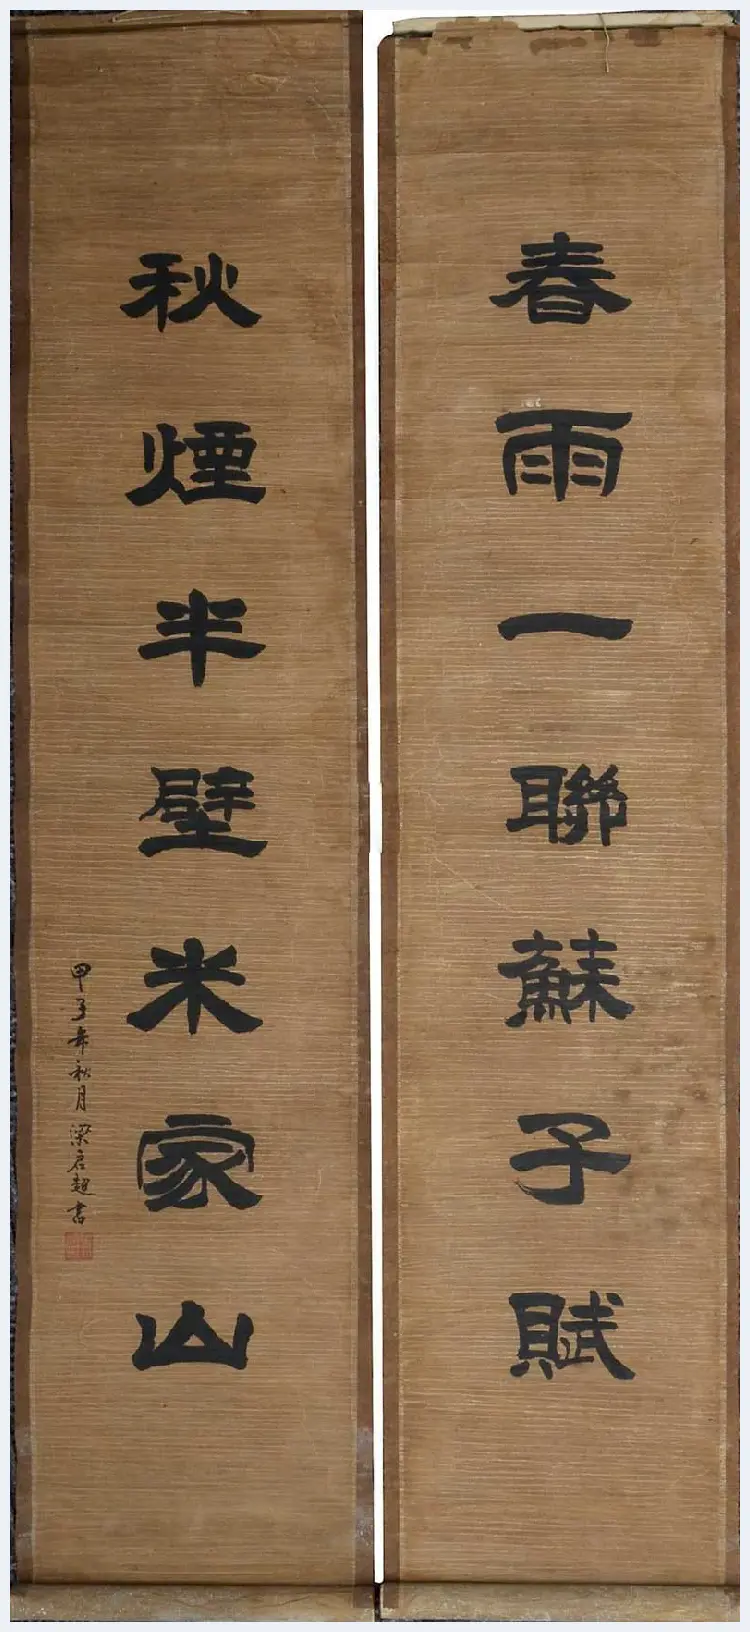 春雨一聯蘇子賦
秋煙半壁米家山
甲子年秋月梁启超書